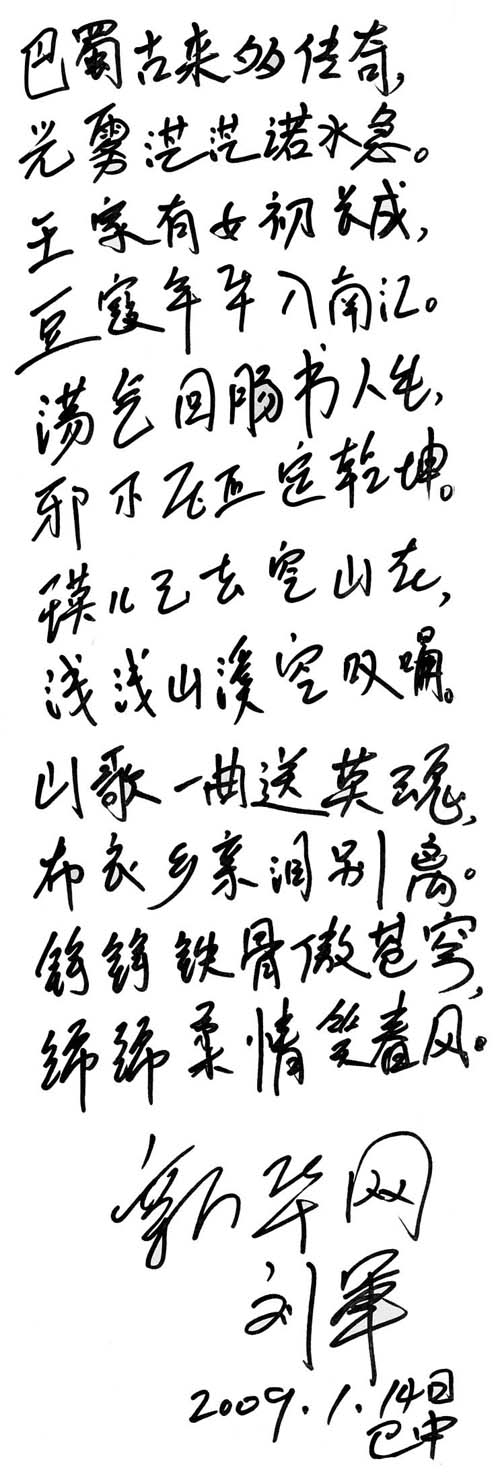 巴蜀古来多传奇,
光雾茫茫诺水急。
王家有女初长成,
豆寇年华入南江。
荡气回肠书人生,
邪不压正定乾坤。
瑛儿已去空山在,
浅浅山溪空叹
山歌一曲送英魂,
布衣乡亲泪别离。
铮铮铁骨傲苍穹,
绵绵柔情笑春风。
新华网
刘军
2009.1.14日
巴中